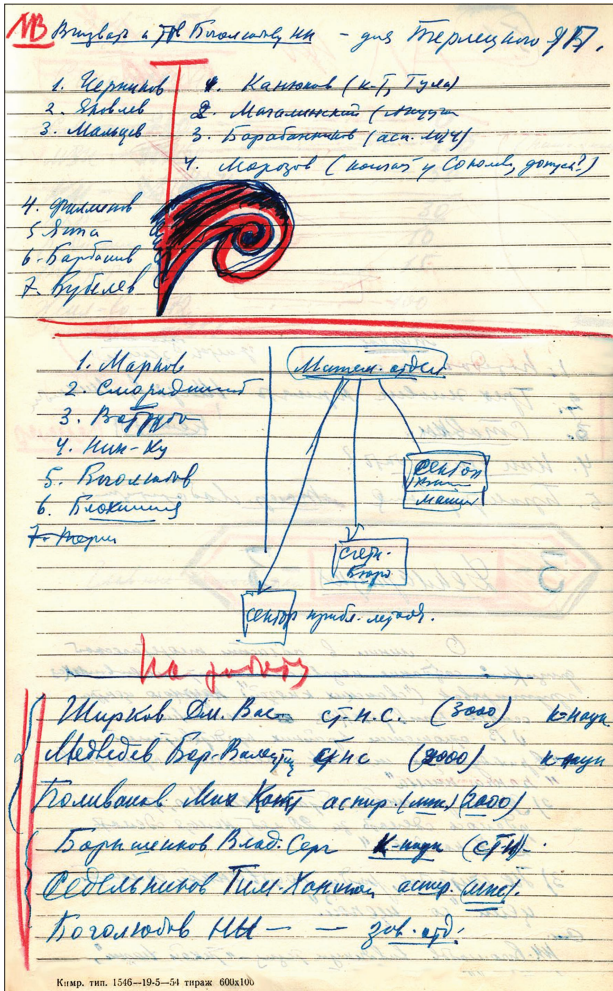 МВ Вызвать и Боголюбову НН — для Терлецкого ЯП.
1. Черников
2. Яковлев
3. Мальцев
1. Канюков (к-т, Тула)
2.
3. Барабанчиков (асп. МГУ)
4. Морозов ( у Соколова, допуск?)
4. Филимонов
5 Янта
6. Барбашив
7. Кубелев
1. Марков
2. Смородинский
3.
4. Нин-Ху
5. Боголюбов
6. Блохинцев
7.
Матем. отдел
сектор
машин
счетн.
бюро
сектор прибл. методов.
На работу
Ширков Дм. Вас ст. н. с. (3000) к-наук
Медведев Бор. Валент стнс (2000) к-наук
Поливанов Мих Конст аспир. (мнс) (2000)
Барашенков Влад. Серг к-наук (стн).
Седельников Тим. Харит аспир (мнс).
Боголюбов НН — — зав. отд.
Кимр. тип. 1546—19-5—54 тираж 600х100